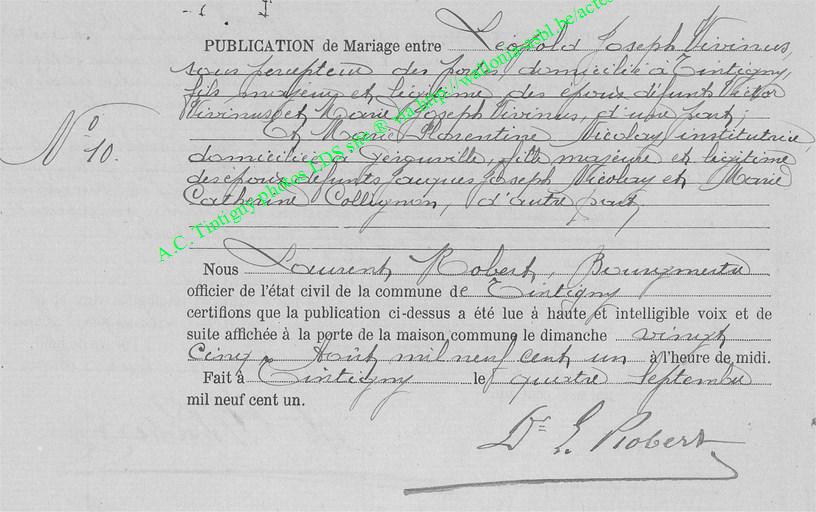 PUBLICATION de Mariage entre Léopold Joseph Vivinus,
sous percepteur des postes domicilié à Tintigny,
fils majeur et légitime des époux défunt Victor
Vivinus et Marie Joseph Vivinus, d'une part,
N° 10.
Et Marie Florentine Nicolay institutrice,
domiciliée à Gérouville, fille majeure et légitime
des époux défunts Jacques Joseph Nicolay et Marie
Catherine Collignon, d'autre part,
Nous Laurent Robert, Bourgmestre
officier de l'état civil de la commune de Tintigny
certifions que la publication ci-dessus a été lue à haute et intelligible voix et de
suite affichée à la porte de la maison commune le dimanche vingt
cinq Août mil neuf cent un à l'heure de midi.
Fait à Tintigny le quatre Septembre
mil neuf cent un.
Dr L. Robert
A.C. Tintigny photos LDS site ® via http://wallonia-asbl.be/actes